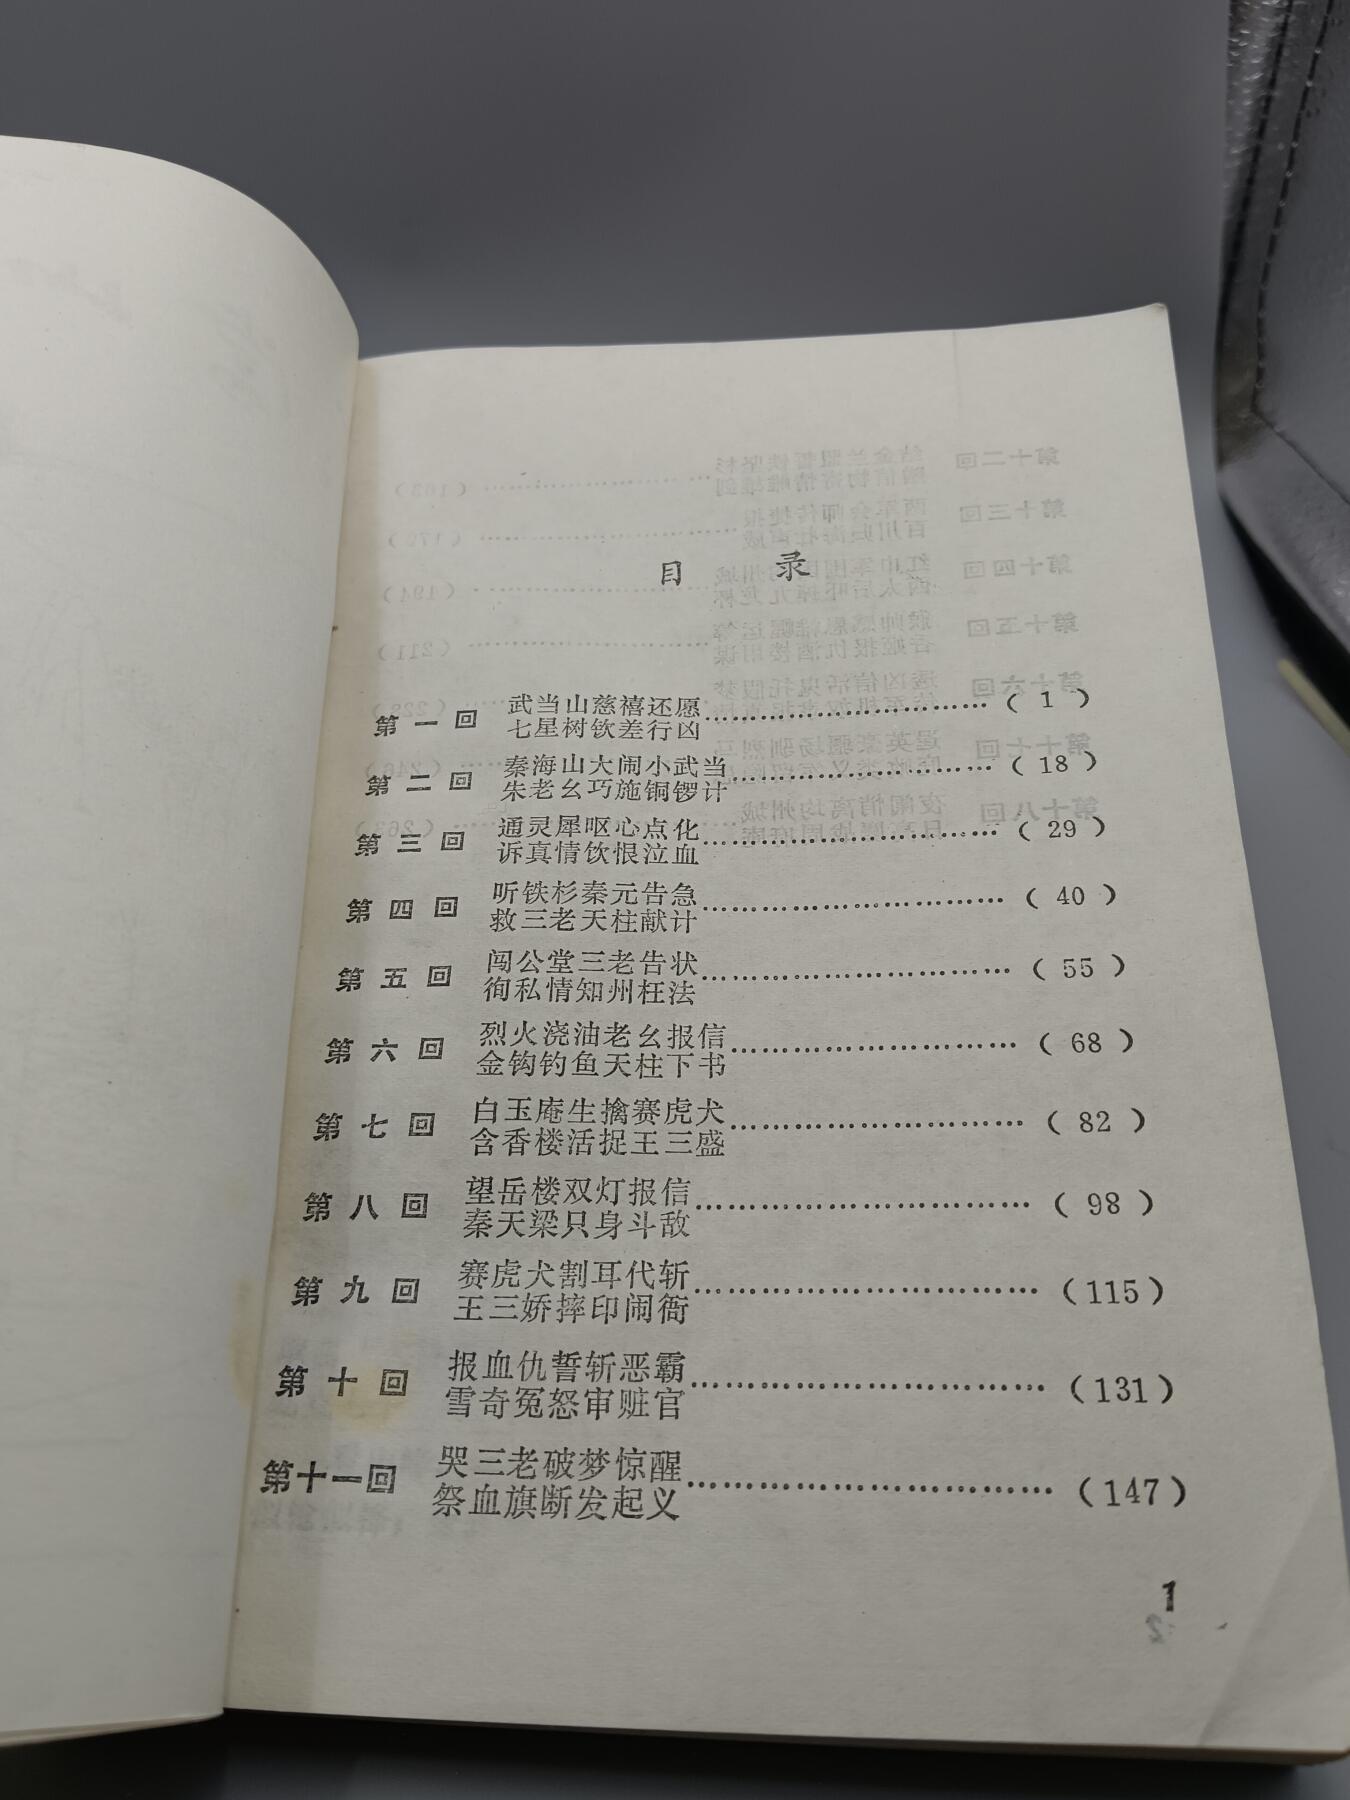 目 录
第一回 武当山慈禧还愿
七星树钦差行凶……………………………( 1 )
第二回 秦海山大闹小武当
朱老幺巧施铜锣计……………………………( 18 )
第三回 通灵犀呕心点化
诉真情饮恨泣血……………………………( 29 )
第四回 听铁杉秦元告急
救三老天柱献计……………………………( 40 )
第五回 闯公堂三老告状
徇私情知州枉法……………………………( 55 )
第六回 烈火浇油老幺报信
金钩钓鱼天柱下书……………………………( 68 )
第七回 白玉庵生擒赛虎犬
含香楼活捉王三盛……………………………( 82 )
第八回 望岳楼双灯报信
秦天梁只身斗敌……………………………( 98 )
第九回 赛虎犬割耳代斩
王三娇摔印闹衙……………………………(115)
第十回 报血仇誓斩恶霸
雪奇冤怒审赃官……………………………(131)
第十一回 哭三老破梦惊醒
祭血旗断发起义……………………………(147)
1